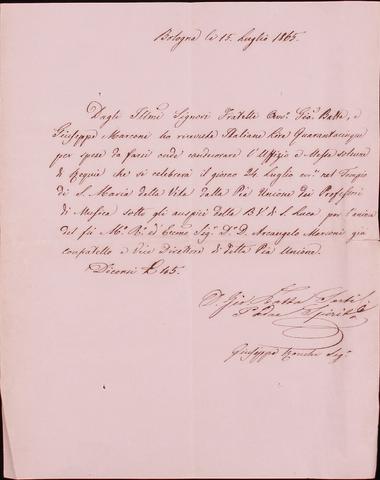 Bologna li 15. Luglio 1865.
Dagli Illmi Signori Fratelli Cav. Gio. Batta, e
Giuseppe Marconi ho ricevuto Italiane Lire Quarantacinque
per spese da farsi onde condecorare l'Uffizio e Messa solenne
di Requie che si celebrerà il giorno 24 Luglio corr. nel Tempio
di S. Maria della Vita dalla Pia Unione dei Professori
di Musica sotto gli auspici della B. V. di S. Luca per l'anima
del fù M. R. ed Eccmo Sig. D. D. Arcangelo Marconi già
confratello e Vice Direttore di detta Pia Unione.
Dicensi £ 45.
D. Gio. Batta Sarti
Padre Spirit.le
Giuseppe Seg.